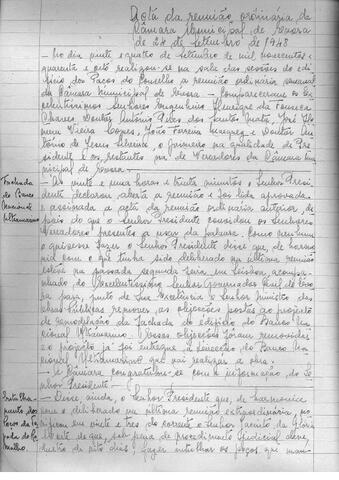 Acta da reunião ordinária da
Câmara Municipal de Evora
de 24 de Setembro de 1948
— No dia vinte e quatro de setembro de mil novecentos e
quarenta e oito realizou-se na sala das sessões do edi-
fício dos Paços do Concelho a reunião ordinária semanal
da Câmara Municipal de Evora — Compareceram os Ex-
celentíssimos Senhores Engenheiro Henrique da Fonseca
Chaves, Doutor António dos Santos José
Vieira Gomes, João Ferreira e Doutor An-
tónio de Jesus o primeiro na qualidade de Pre-
sidente e os restantes na de Vereadores da Câmara Mu-
nicipal de Evora.
Fachada
do Banco
Nacional
Ultramarino
— Às vinte e uma horas e trinta minutos o Senhor Presi-
dente declarou aberta a reunião e foi lida aprovada
e assinada a acta da reunião ordinária anterior, de-
pois do que o Senhor Presidente convidou os Senhores
Vereadores presentes a usar da palavra. Como nenhum
o quisesse fazer o Senhor Presidente disse que, de harmo-
nia com o que tinha sido deliberado na última reunião
esteve na passada segunda feira em Lisboa, acompa-
nhado do Excelentíssimo Senhor Governador Civil de Evo-
ra para, junto de Sua Excelência o Senhor Ministro das
Obras Públicas remover as objecções postas ao projecto
de remodelação da fachada do edifício do Banco Na-
cional Ultramarino. Essas objecções foram removidas
e o projecto já foi entregue à Direcção do Banco Na-
cional Ultramarino que vai realizar a obra —
— A Câmara congratulou-se com a informação do Se-
nhor Presidente —
— Disse, ainda, o Senhor Presidente que, de harmonia
com o deliberado na última reunião extraordinária,
em vinte e três do corrente o Senhor Jacinto da Glória
de que, sob pena de procedimento judicial deve,
dentro de oito dias, fazer entulhar os poços que man-
Entulha-
mento dos
poços da